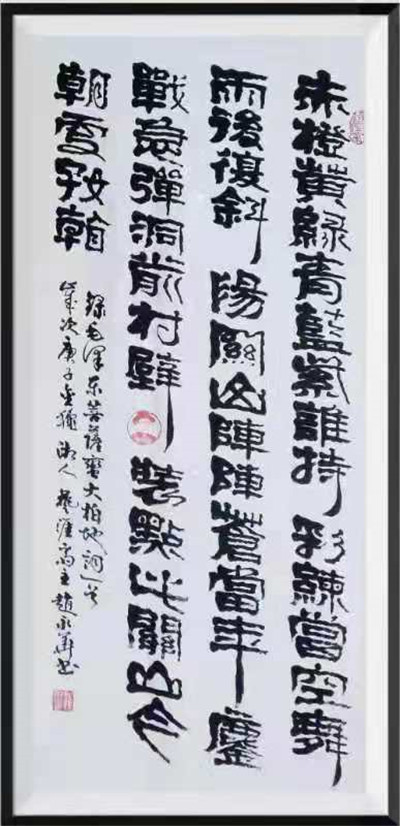 赤橙黃綠青藍紫誰持彩練當空舞
雨後復斜陽關山陣陣蒼當年鏖
戰急彈洞前村壁裝點此關山今
朝更好看
錄毛澤東菩薩蠻大柏地詞一首
歲次庚子金秋湘人藝涯齋主趙永華書